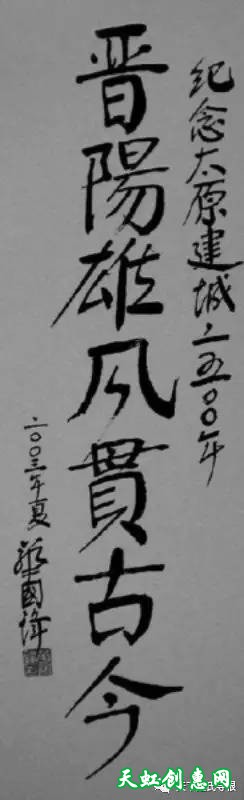 纪念太原建城二五〇〇年
晋陽雄风貫古今
二〇〇三年夏
天虹创惠网